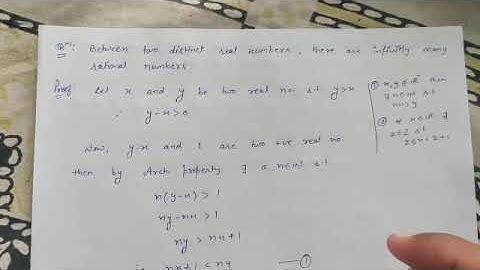 Between two distinct real numbers, there are infinitly many
rational numbers.
Proof Let x and y be two real no. s.t y>x
∴ y-x>0
Now, y-x and 1 are two +ve real no.
then by Arch property ∃ a n∈ℕ s.t
n(y-x) > 1
ny-nx > 1
ny > nx+1
i.e. nx+1 < ny —①
① x,y∈ℝ then
∃ n∈ℕ s.t
nx>y
② x∈ℝ ∃
z∈ℤ s.t
z≤x<z+1